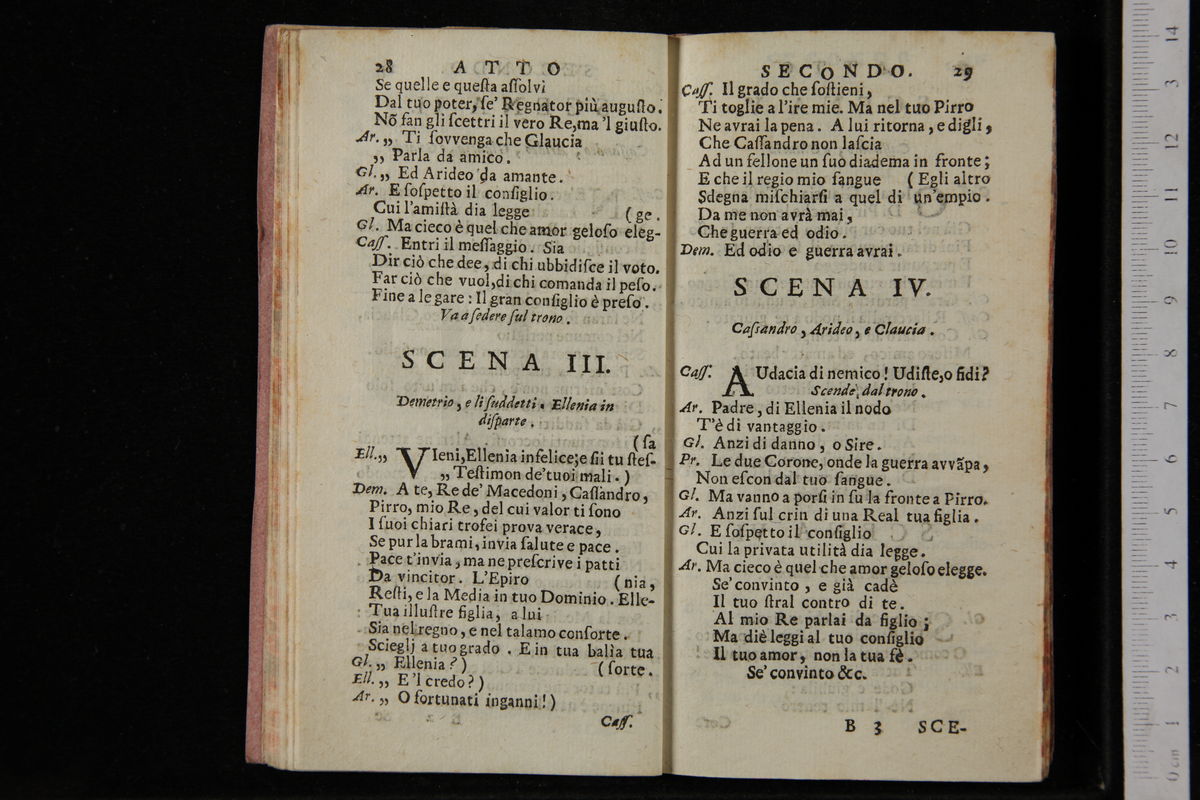 28 ATTO
Se quelle e queſta aſſolvi
Dal tuo poter, ſe' Regnator più auguſto.
Nõ fan gli ſcettri il vero Re, ma 'l giuſto.
Ar. „ Ti ſovvenga che Glaucia
„ Parla da amico.
Gl. „ Ed Arideo da amante.
Ar. E ſoſpetto il conſiglio.
Cui l'amiſtà dia legge (ge.
Gl. Ma cieco è quel che amor geloſo eleg-
Caſſ. Entri il meſſaggio. Sia
Dir ciò che dee, di chi ubbidiſce il voto.
Far ciò che vuol, di chi comanda il peſo.
Fine a le gare: Il gran conſiglio è preſo.
Va a ſedere ſul trono.
SCENA III.
Demetrio, e li ſuddetti. Ellenia in
diſparte.
(ſa
Ell. „ VIeni, Ellenia infelice; e ſii tu ſteſ-
„ Teſtimon de' tuoi mali.)
Dem. A te, Re de' Macedoni, Caſſandro,
Pirro, mio Re, del cui valor ti ſono
I ſuoi chiari trofei prova verace,
Se pur la brami, invia ſalute e pace.
Pace t'invia, ma ne preſcrive i patti
Da vincitor. L'Epiro (nia,
Reſti, e la Media in tuo Dominio. Elle-
Tua illuſtre figlia, a lui
Sia nel regno, e nel talamo conſorte.
Sciegli a tuo grado. E in tua balìa tua
Gl. „ Ellenia?) (ſorte.
Ell. „ E 'l credo?)
Ar. „ O fortunati inganni!)
Caſſ.
SECONDO. 29
Caſſ. Il grado che ſoſtieni,
Ti toglie a l'ire mie. Ma nel tuo Pirro
Ne avrai la pena. A lui ritorna, e digli,
Che Caſſandro non laſcia
Ad un fellone un ſuo diadema in fronte;
E che il regio mio ſangue (Egli altro
Sdegna miſchiarſi a quel di un'empio.
Da me non avrà mai,
Che guerra ed odio.
Dem. Ed odio e guerra avrai.
SCENA IV.
Caſsandro, Arideo, e Claucia.
Caſſ. AUdacia di nemico! Udiſte, o fidi?
Scende dal trono.
Ar. Padre, di Ellenia il nodo
T'è di vantaggio.
Gl. Anzi di danno, o Sire.
Pr. Le due Corone, onde la guerra avvãpa,
Non eſcon dal tuo ſangue.
Gl. Ma vanno a porſi in ſu la fronte a Pirro.
Ar. Anzi ſul crin di una Real tua figlia.
Gl. E ſoſpetto il conſiglio
Cui la privata utilità dia legge.
Ar. Ma cieco è quel che amor geloſo elegge.
Se' convinto, e già cadè
Il tuo ſtral contro di te.
Al mio Re parlai da figlio;
Ma diè leggi al tuo conſiglio
Il tuo amor, non la tua fè.
Se' convinto &c.
B 3 SCE-